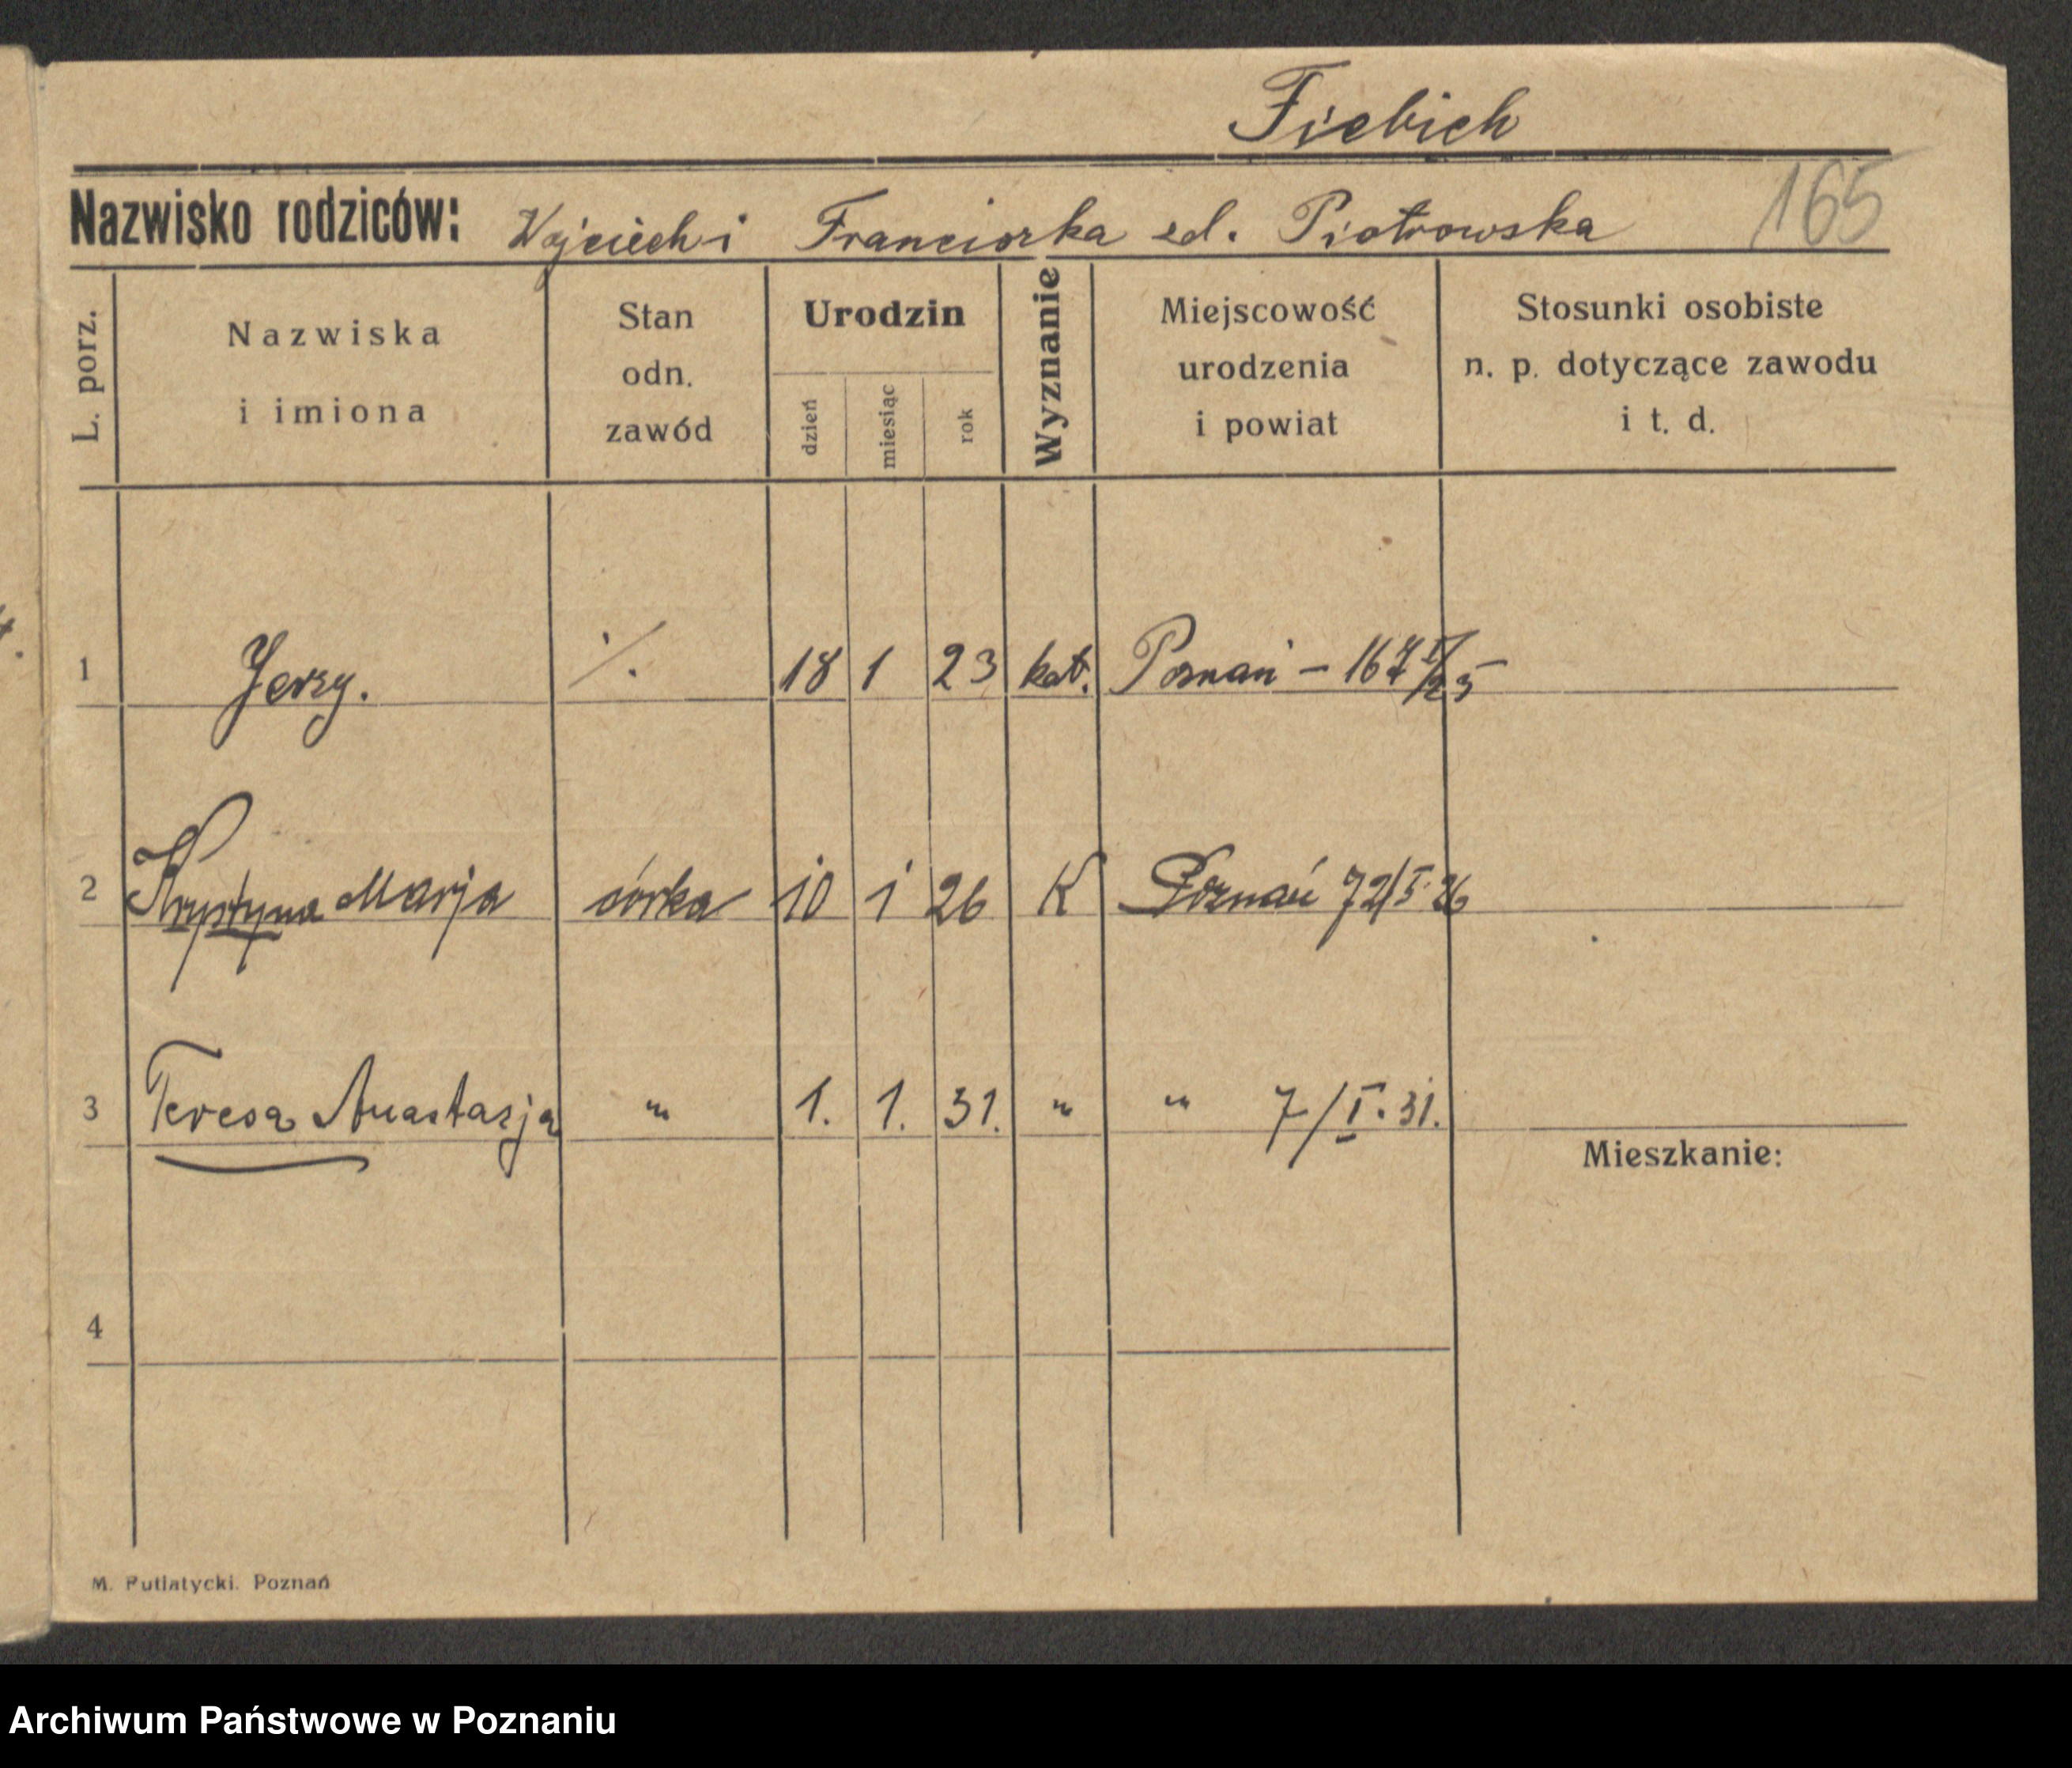 Fiebich
Nazwisko rodziców: Wojciech i Franciszka zd. Piotrowska 165
L. porz.
Nazwiska
i imiona
Stan
odn.
zawód
Urodzin
dzień
miesiąc
rok
Wyznanie
Miejscowość
urodzenia
i powiat
Stosunki osobiste
n. p. dotyczące zawodu
i t. d.
1 Jerzy. ./. 18 1 23 kat. Poznań - 167 I/23 -
2 Krystyna Marja córka 10 1 26 K Poznań 72/I. 26
3 Teresa Anastazja " 1. 1. 31. " " 7/I. 31.
Mieszkanie:
4
M. Putiatycki. Poznań
Archiwum Państwowe w Poznaniu